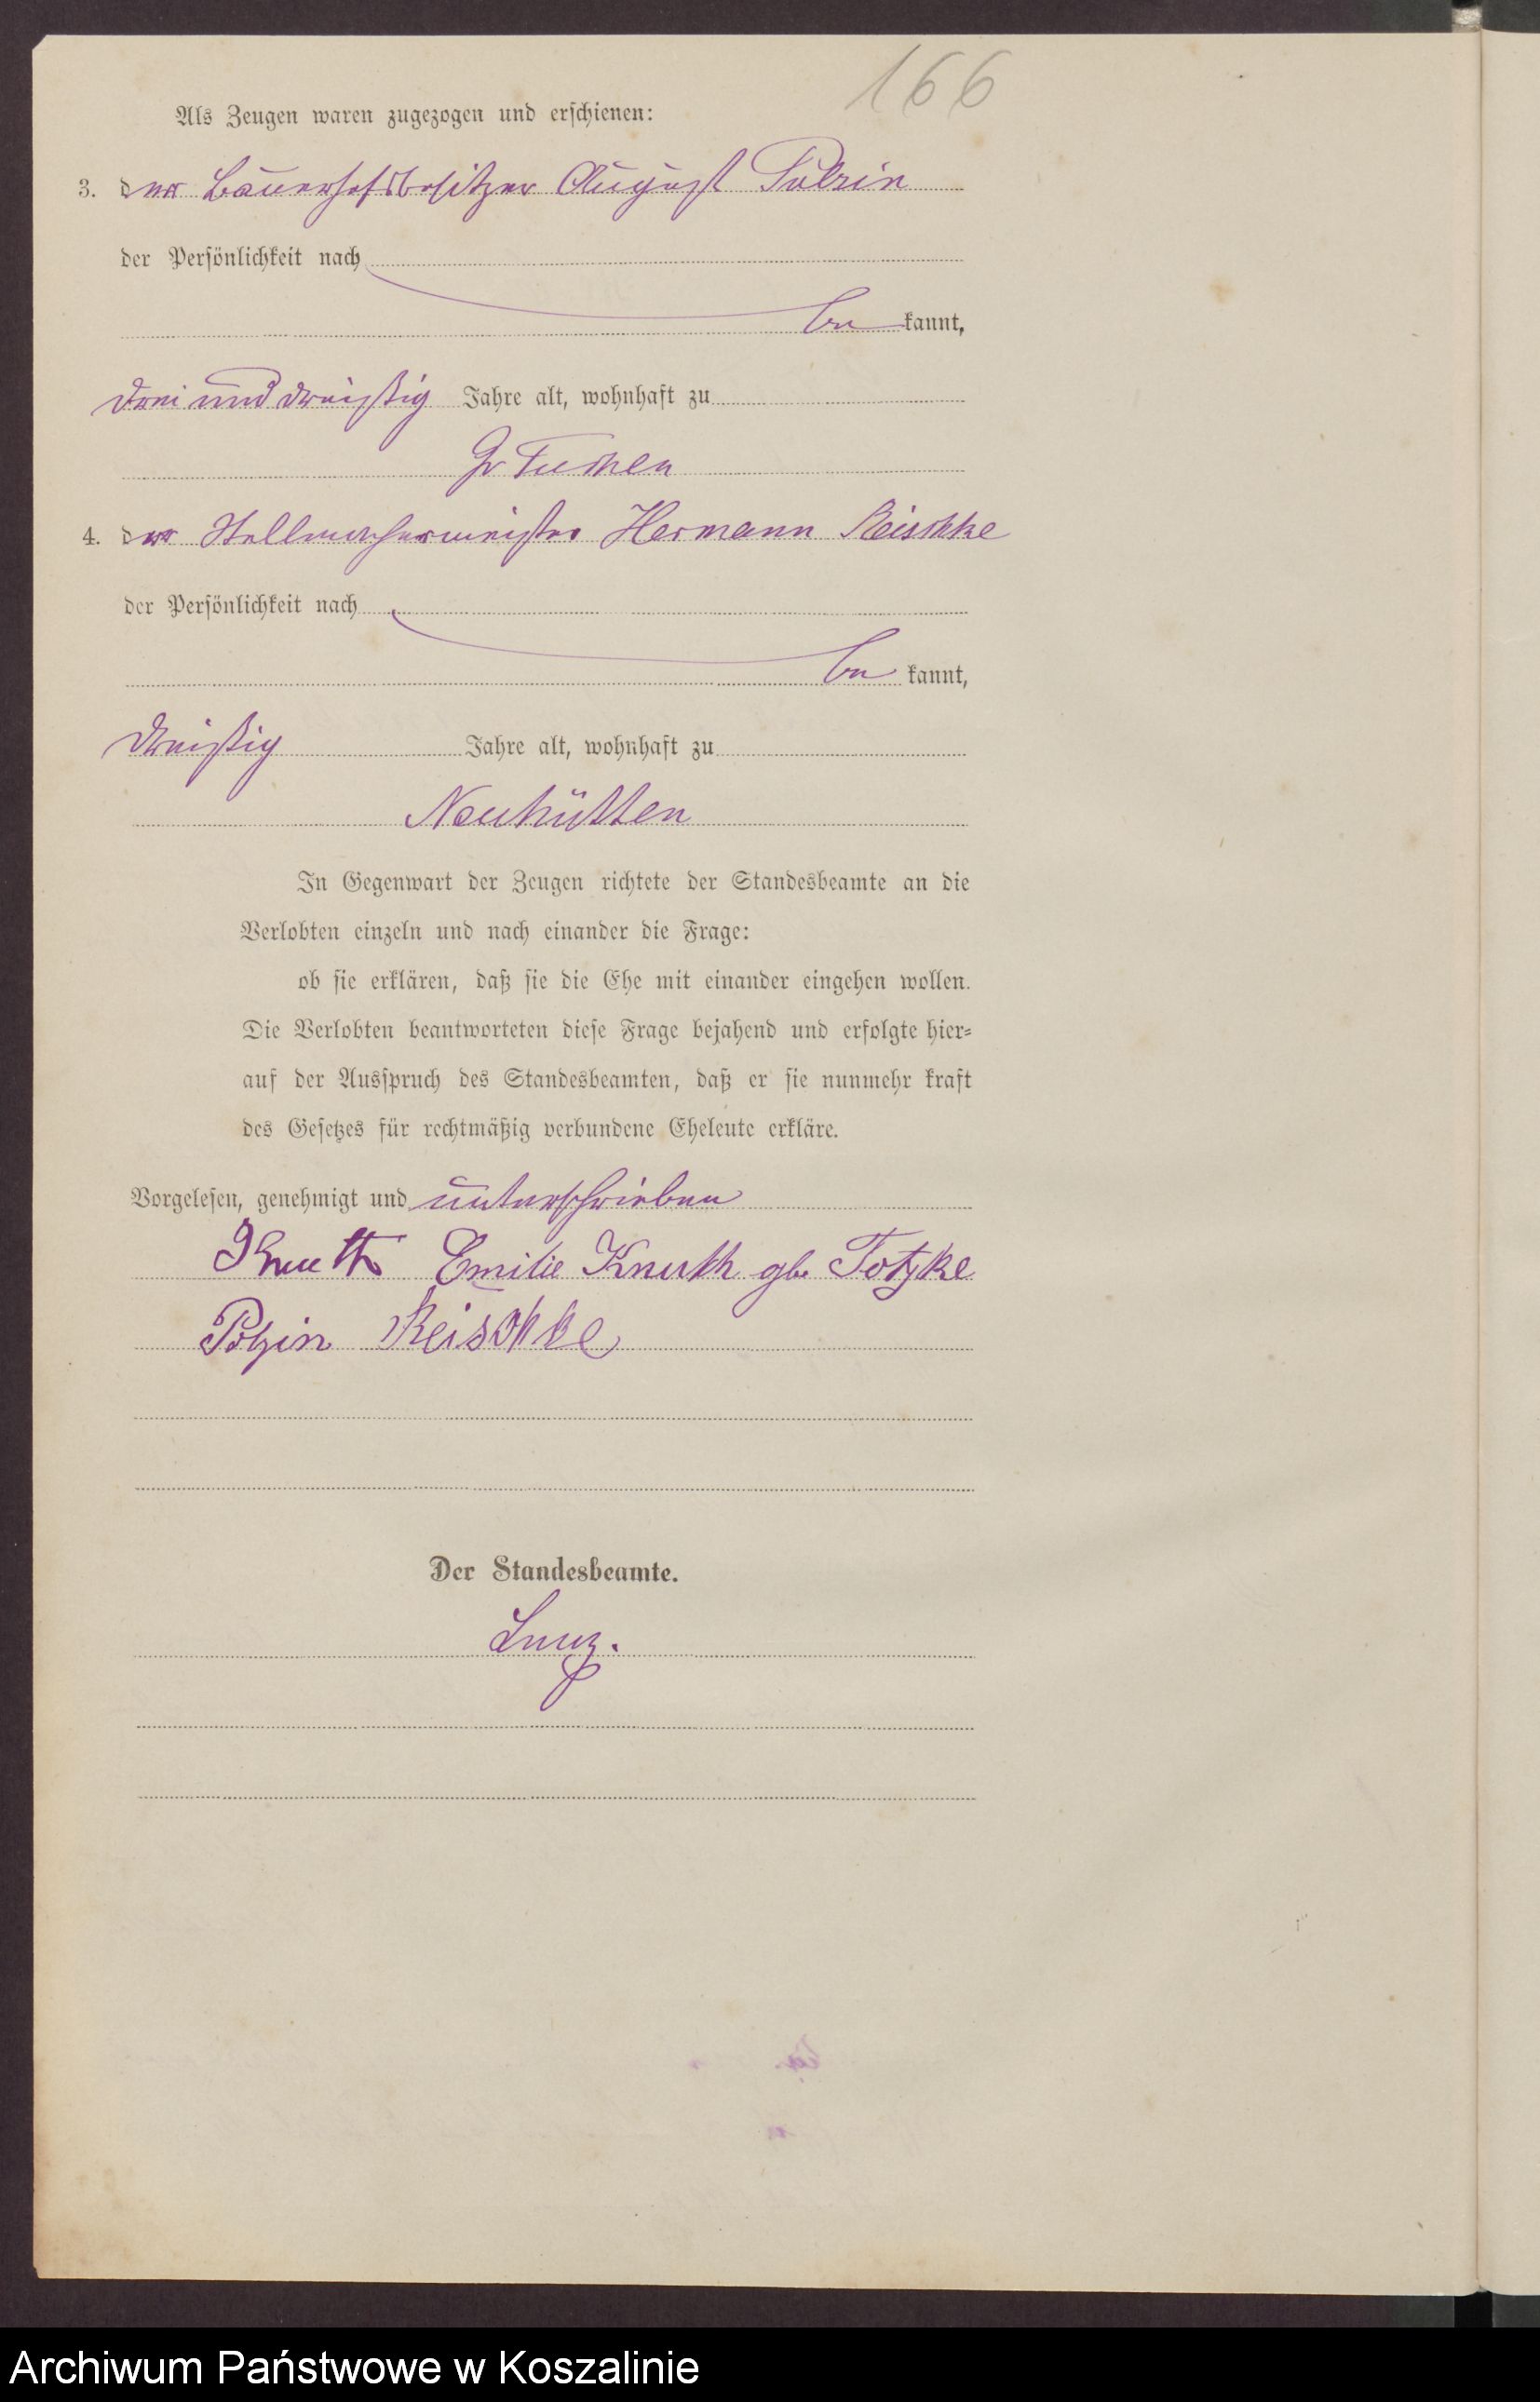 166
Als Zeugen waren zugezogen und erschienen:
3. der Bauerhofsbesitzer August Polzin
der Persönlichkeit nach
be kannt,
drei und dreißig Jahre alt, wohnhaft zu
Gr Tuchen
4. der Stellmachermeister Hermann Reischke
der Persönlichkeit nach
be kannt,
dreißig Jahre alt, wohnhaft zu
Neuhütten
In Gegenwart der Zeugen richtete der Standesbeamte an die
Verlobten einzeln und nach einander die Frage:
ob sie erklären, daß sie die Ehe mit einander eingehen wollen.
Die Verlobten beantworteten diese Frage bejahend und erfolgte hier-
auf der Ausspruch des Standesbeamten, daß er sie nunmehr kraft
des Gesetzes für rechtmäßig verbundene Eheleute erkläre.
Vorgelesen, genehmigt und unterschrieben
Knuth Emilie Knuth gb. Totzke
Polzin Reischke
Der Standesbeamte.
Archiwum Państwowe w Koszalinie